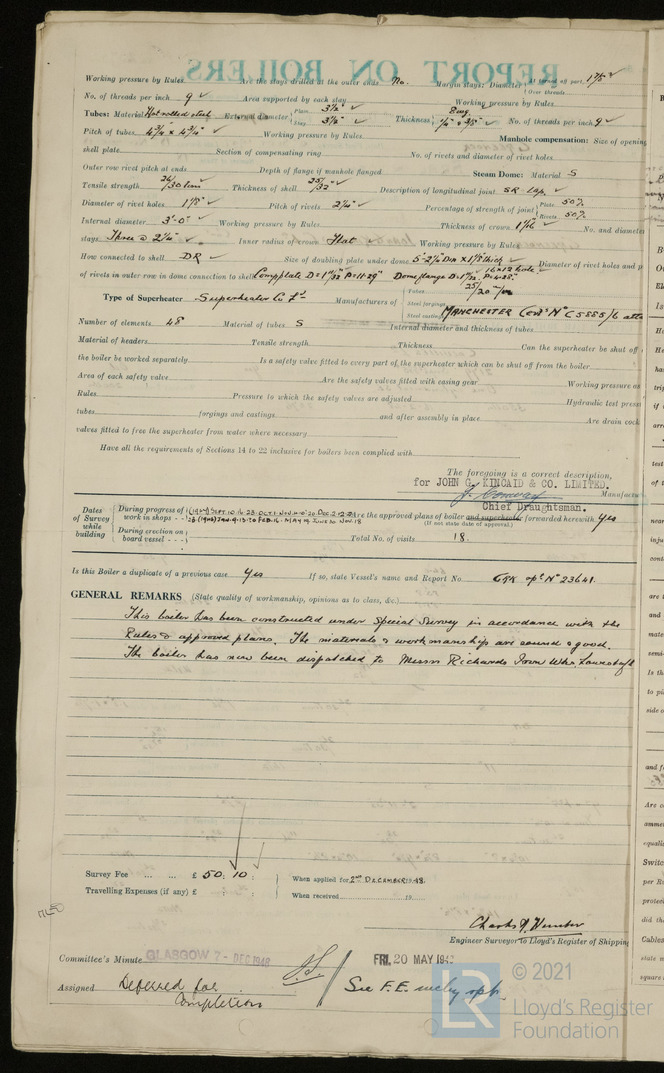 REPORT ON BOILERS
Working pressure by Rules Are the stays drilled at the outer ends No. Margin stays: Diameter At turned off part, 1 7/8" ✓
Over threads
No. of threads per inch 9 ✓ Area supported by each stay Working pressure by Rules
Tubes: Material Hot rolled steel External diameter Plain 3 1/2" ✓ Stay 3 1/2" ✓ Thickness 8 wg. No. of threads per inch 9 ✓
Pitch of tubes 4 3/4 x 4 3/4" ✓ Working pressure by Rules Manhole compensation: Size of opening
shell plate Section of compensating ring No. of rivets and diameter of rivet holes
Outer row rivet pitch at ends Depth of flange if manhole flanged Steam Dome: Material S
Tensile strength 26/30 tons Thickness of shell 25/32" ✓ Description of longitudinal joint SR. Lap. ✓
Diameter of rivet holes 1 1/8" ✓ Pitch of rivets 2 1/4" ✓ Percentage of strength of joint Plate 50% Rivets 50%
Internal diameter 3'-0" ✓ Working pressure by Rules Thickness of crown 1 1/16 ✓ No. and diameter
stays Three @ 2 1/4" ✓ Inner radius of crown Flat ✓ Working pressure by Rules
How connected to shell DR ✓ Size of doubling plate under dome 5'-2 1/4" Dia x 1 1/8 thick ✓ Diameter of rivet holes and p
16x12 hole ✓
of rivets in outer row in dome connection to shell Comp plate D = 1 11/32" P = 11.29" Dome flange D = 1 11/32, P = 4.25"
Type of Superheater Superheater Co Ld Manufacturers of Tubes Steel forgings Steel castings MANCHESTER Cert No C5885/6 atta
Number of elements 48 Material of tubes S Internal diameter and thickness of tubes
Material of headers Tensile strength Thickness Can the superheater be shut off
the boiler be worked separately Is a safety valve fitted to every part of the superheater which can be shut off from the boiler
Area of each safety valve Are the safety valves fitted with easing gear Working pressure as
Rules Pressure to which the safety valves are adjusted Hydraulic test press
tubes forgings and castings and after assembly in place Are drain cock
valves fitted to free the superheater from water where necessary
Have all the requirements of Sections 14 to 22 inclusive for boilers been complied with
The foregoing is a correct description,
for JOHN G. KINCAID & CO. LIMITED.
J. Conway Manufactur
Chief Draughtsman.
Dates of Survey while building
During progress of work in shops - -
During erection on board vessel - - -
Are the approved plans of boiler and superheater forwarded herewith Yes
(If not state date of approval.)
Total No. of visits 18
Is this Boiler a duplicate of a previous case Yes If so, state Vessel's name and Report No. GRK rpt. No 23641.
GENERAL REMARKS (State quality of workmanship, opinions as to class, &c.)
This boiler has been constructed under Special Survey in accordance with the
Rules & approved plans. The materials & workmanship are sound & good.
The boiler has now been dispatched to Messrs Richards Iron Wks. Lowestoft
Survey Fee ... ... £ 50 : 10 : When applied for 2nd DECEMBER 1948.
Travelling Expenses (if any) £ : : When received 19
Charles H. Hunter
Engineer Surveyor to Lloyd's Register of Shipping
Committee's Minute GLASGOW 7 - DEC 1948 FRI. 20 MAY 194
Assigned Deferred for completion
See F.E. mchy rpt.
© 2021
LR Lloyd's Register
Foundation